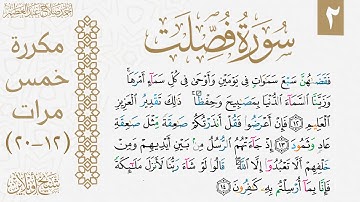 ٢
سورة فصلت
فَقَضَىٰهُنَّ سَبْعَ سَمَٰوَاتٍ فِى يَوْمَيْنِ وَأَوْحَىٰ فِى كُلِّ سَمَآءٍ أَمْرَهَا ۚ
وَزَيَّنَّا ٱلسَّمَآءَ ٱلدُّنْيَا بِمَصَٰبِيحَ وَحِفْظًا ۚ ذَٰلِكَ تَقْدِيرُ ٱلْعَزِيزِ
ٱلْعَلِيمِ ١٢ فَإِنْ أَعْرَضُوا۟ فَقُلْ أَنذَرْتُكُمْ صَٰعِقَةً مِّثْلَ صَٰعِقَةِ
عَادٍ وَثَمُودَ ١٣ إِذْ جَآءَتْهُمُ ٱلرُّسُلُ مِنۢ بَيْنِ أَيْدِيهِمْ وَمِنْ
خَلْفِهِمْ أَلَّا تَعْبُدُوٓا۟ إِلَّا ٱللَّهَ ۖ قَالُوا۟ لَوْ شَآءَ رَبُّنَا لَأَنزَلَ مَلَٰٓئِكَةً
فَإِنَّا بِمَآ أُرْسِلْتُم بِهِۦ كَٰفِرُونَ ١٤
مكررة
خمس
مرات
(١٢-٢٠)